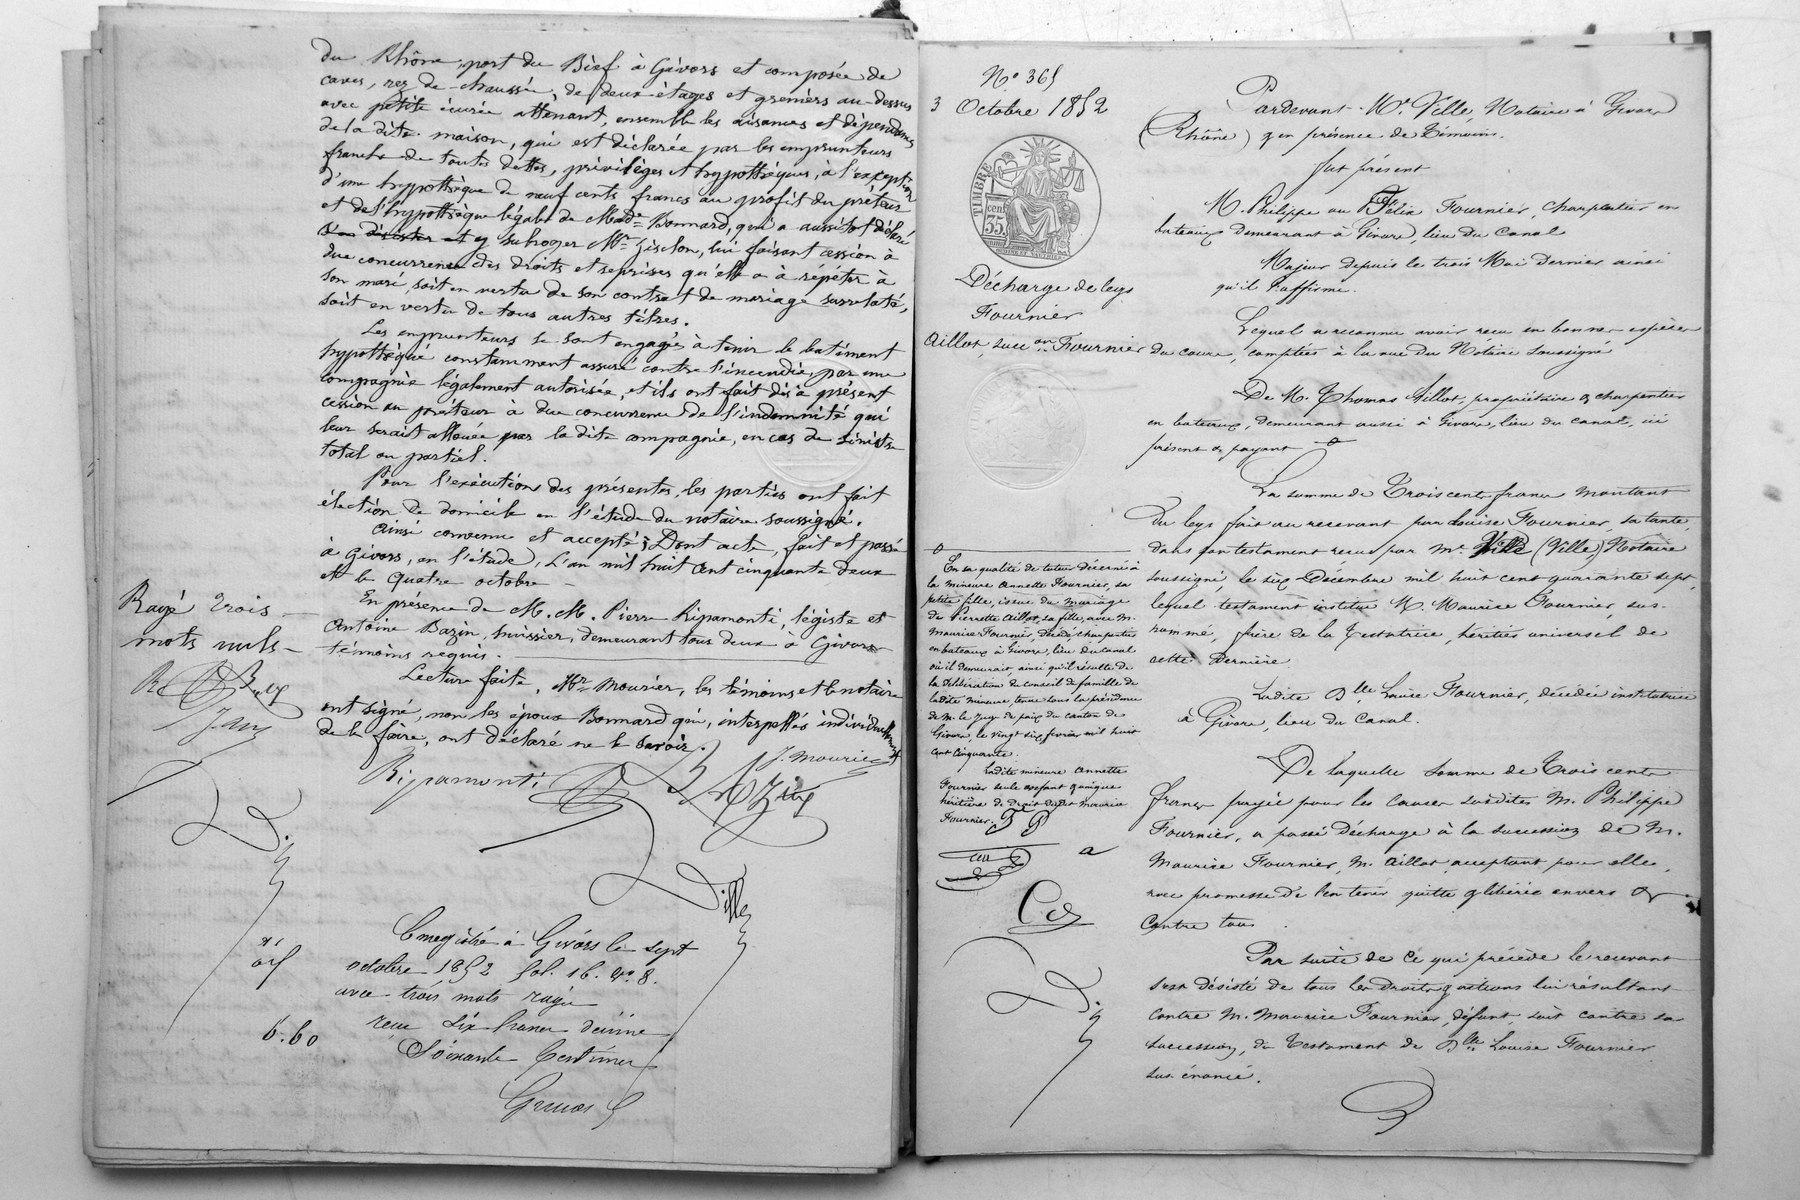 du Rhône, port du Bief à Givors et composée de
caves, rez de chaussée, de deux étages et greniers au-dessus
avec petite écurie attenant, ensemble les aisances et dépendances
de la dite maison, qui est déclarée par les emprunteurs
franche de toutes dettes, privilèges et hypothèques, à l'exception
d'une hypothèque de neuf cents francs au profit du prêteur
et de l'hypothèque légale de Made Bonnard, qui a aussitôt déclaré
et y subroger Mr, lui faisant cession à
due concurrence des droits et reprises qu'elle a à répéter à
son mari, soit en vertu de son contrat de mariage surrelaté,
soit en vertu de tous autres titres.
Les emprunteurs se sont engagés à tenir le batiment
hypothéqué constamment assuré contre l'incendie, par une
compagnie légalement autorisée, et ils ont fait dès à présent
cession au prêteur à due concurrence de l'indemnité qui
leur serait allouée par la dite compagnie, en cas de sinistre
total ou partiel.
Pour l'exécution des présentes, les parties ont fait
élection de domicile en l'étude du notaire soussigné.
Ainsi convenu et accepté; Dont acte, fait et passé
à Givors, en l'étude, L'an mil huit cent cinquante deux
et le quatre octobre
En présence de M. M. Pierre Ripamonti, légiste et
Antoine Bazin, huissier, demeurant tous deux à Givors
témoins requis.
Lecture faite, Mr Mourier, les témoins et le notaire
ont signé, non les époux Bonnard qui, interpellés individuellement
de le faire, ont déclaré ne le savoir.
Rayé trois
mots nuls
J. Mourier
Ripamonti
Ville
Enregistré à Givors le sept
octobre 1852 fol. 16. Vo. 8.
avec trois mots rayés
reçu six francs décime
Soixante Centimes
6.60
No 365
3 Octobre 1852
TIMBRE
35 cent
Décharge de legs
Fournier
Aillot, succon Fournier
Pardevant Me Ville, Notaire à Givors
(Rhône) & en présence de Témoins.
fut présent
M. Philippe ou Félix Fournier, charpentier en
bateaux demeurant à Givors, lieu du Canal
Majeur depuis le trois Mai dernier ainsi
qu'il l'affirme.
Lequel a reconnu avoir reçu en bonnes espèces
du cours, comptées à la vue du Notaire soussigné
De M. Thomas Aillot, propriétaire & charpentier
en bateaux, demeurant aussi à Givors, lieu du canal, ici
présent & payant
La somme de Trois cents francs montant
du legs fait au recevant par Louise Fournier, sa tante,
dans son testament reçu par Me Ville (Ville) Notaire
soussigné, le six Décembre mil huit cent quarante sept,
lequel testament institue M. Maurice Fournier, sus-
nommé, frère de la Testatrice, héritier universel de
cette dernière
Ladite Dlle Louise Fournier, décédée institutrice
à Givors, lieu du Canal.
De laquelle somme de Trois cents
francs payée pour les causes susdites M. Philippe
Fournier, a passé décharge à la succession de M.
Maurice Fournier, M. Aillot acceptant pour elle,
avec promesse de l'en tenir quitte & libérée envers &
contre tous
Par suite de ce qui précède le recevant
s'est désisté de tous les droits & actions lui résultant
contre M. Maurice Fournier, défunt, soit contre sa
succession, du Testament de Dlle Louise Fournier
sus énoncé.
En sa qualité de tuteur décerné à
la mineure Annette Fournier, sa
petite fille, issue du mariage
de Pierrette Aillot, sa fille, avec M.
Maurice Fournier, décédé charpentier
en bateaux à Givors, lieu du canal
où il demeurait, ainsi qu'il résulte de
la délibération du conseil de famille de
ladite mineure, tenue sous la présidence
de M. le Juge de paix du canton de
Givors, le vingt six février mil huit
cent cinquante.
Ladite mineure Annette
Fournier seule enfant & unique
héritière de droit dudit Maurice
Fournier.